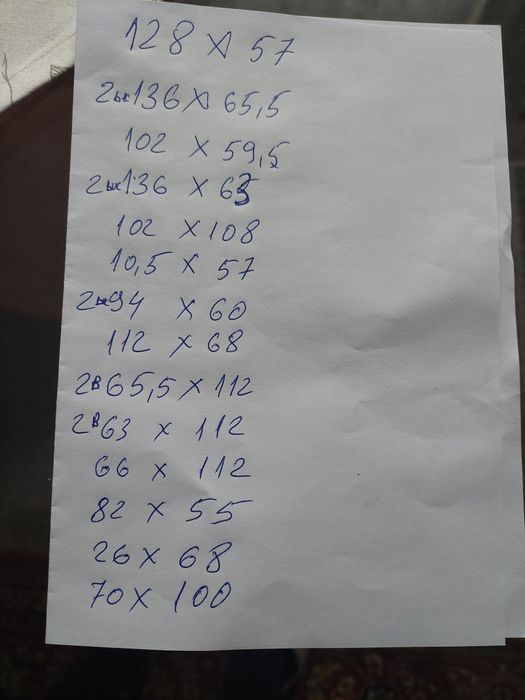 128 x 57
2 136 x 65,5
102 x 59,5
2 136 x 63
102 x 108
10,5 x 57
2 94 x 60
112 x 68
2в 65,5 x 112
2в 63 x 112
66 x 112
82 x 55
26 x 68
70 x 100